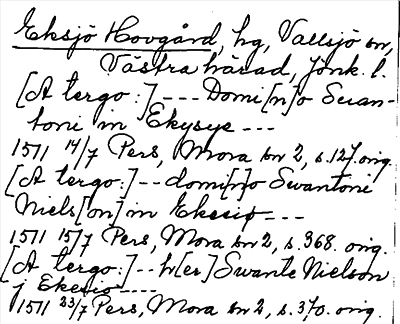 Eksjö Hovgård, hg, Vallsjö sn,
Västra härad, Jönk. l.
[A tergo:] --- Domi[n]o Swan-
toni in Ekysye ---
1511 14/7 Pers, Mora bn 2, s. 127. orig.
[A tergo:] -- domi[n]o Swantoni
Niels[on] in Ekesiø ---
1511 15/7 Pers, Mora bn 2, s. 368. orig.
[A tergo:] -- h[er] Swante Nielson
j Ekesiø ----
1511 23/7 Pers, Mora bn 2, s. 370. orig.